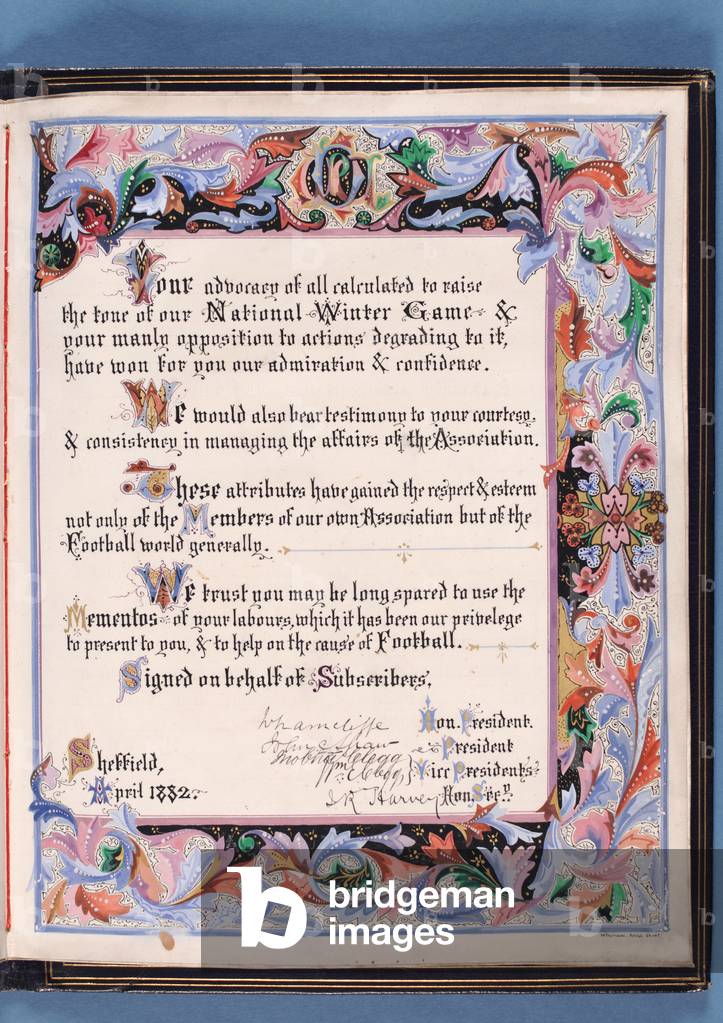 Your advocacy of all calculated to raise
the tone of our National Winter Game &
your manly opposition to actions degrading to it,
have won for you our admiration & confidence.
We would also bear testimony to your courtesy,
& consistency in managing the affairs of the Association.
These attributes have gained the respect & esteem
not only of the Members of our own Association but of the
Football world generally.
We trust you may be long spared to use the
Mementos of your labours, which it has been our privelege
to present to you, & to help on the cause of Football.
Signed on behalf of Subscribers,
Wharncliffe Hon. President.
John C Shaw President
Clegg
Wm Clegg Vice Presidents
J R Harvey Hon. Secy.
Sheffield,
April 1882.
b bridgeman
images